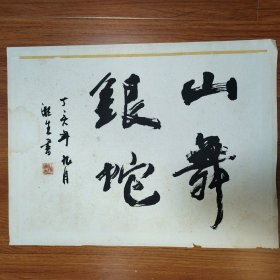 山舞
銀蛇
丁亥年九月
生書